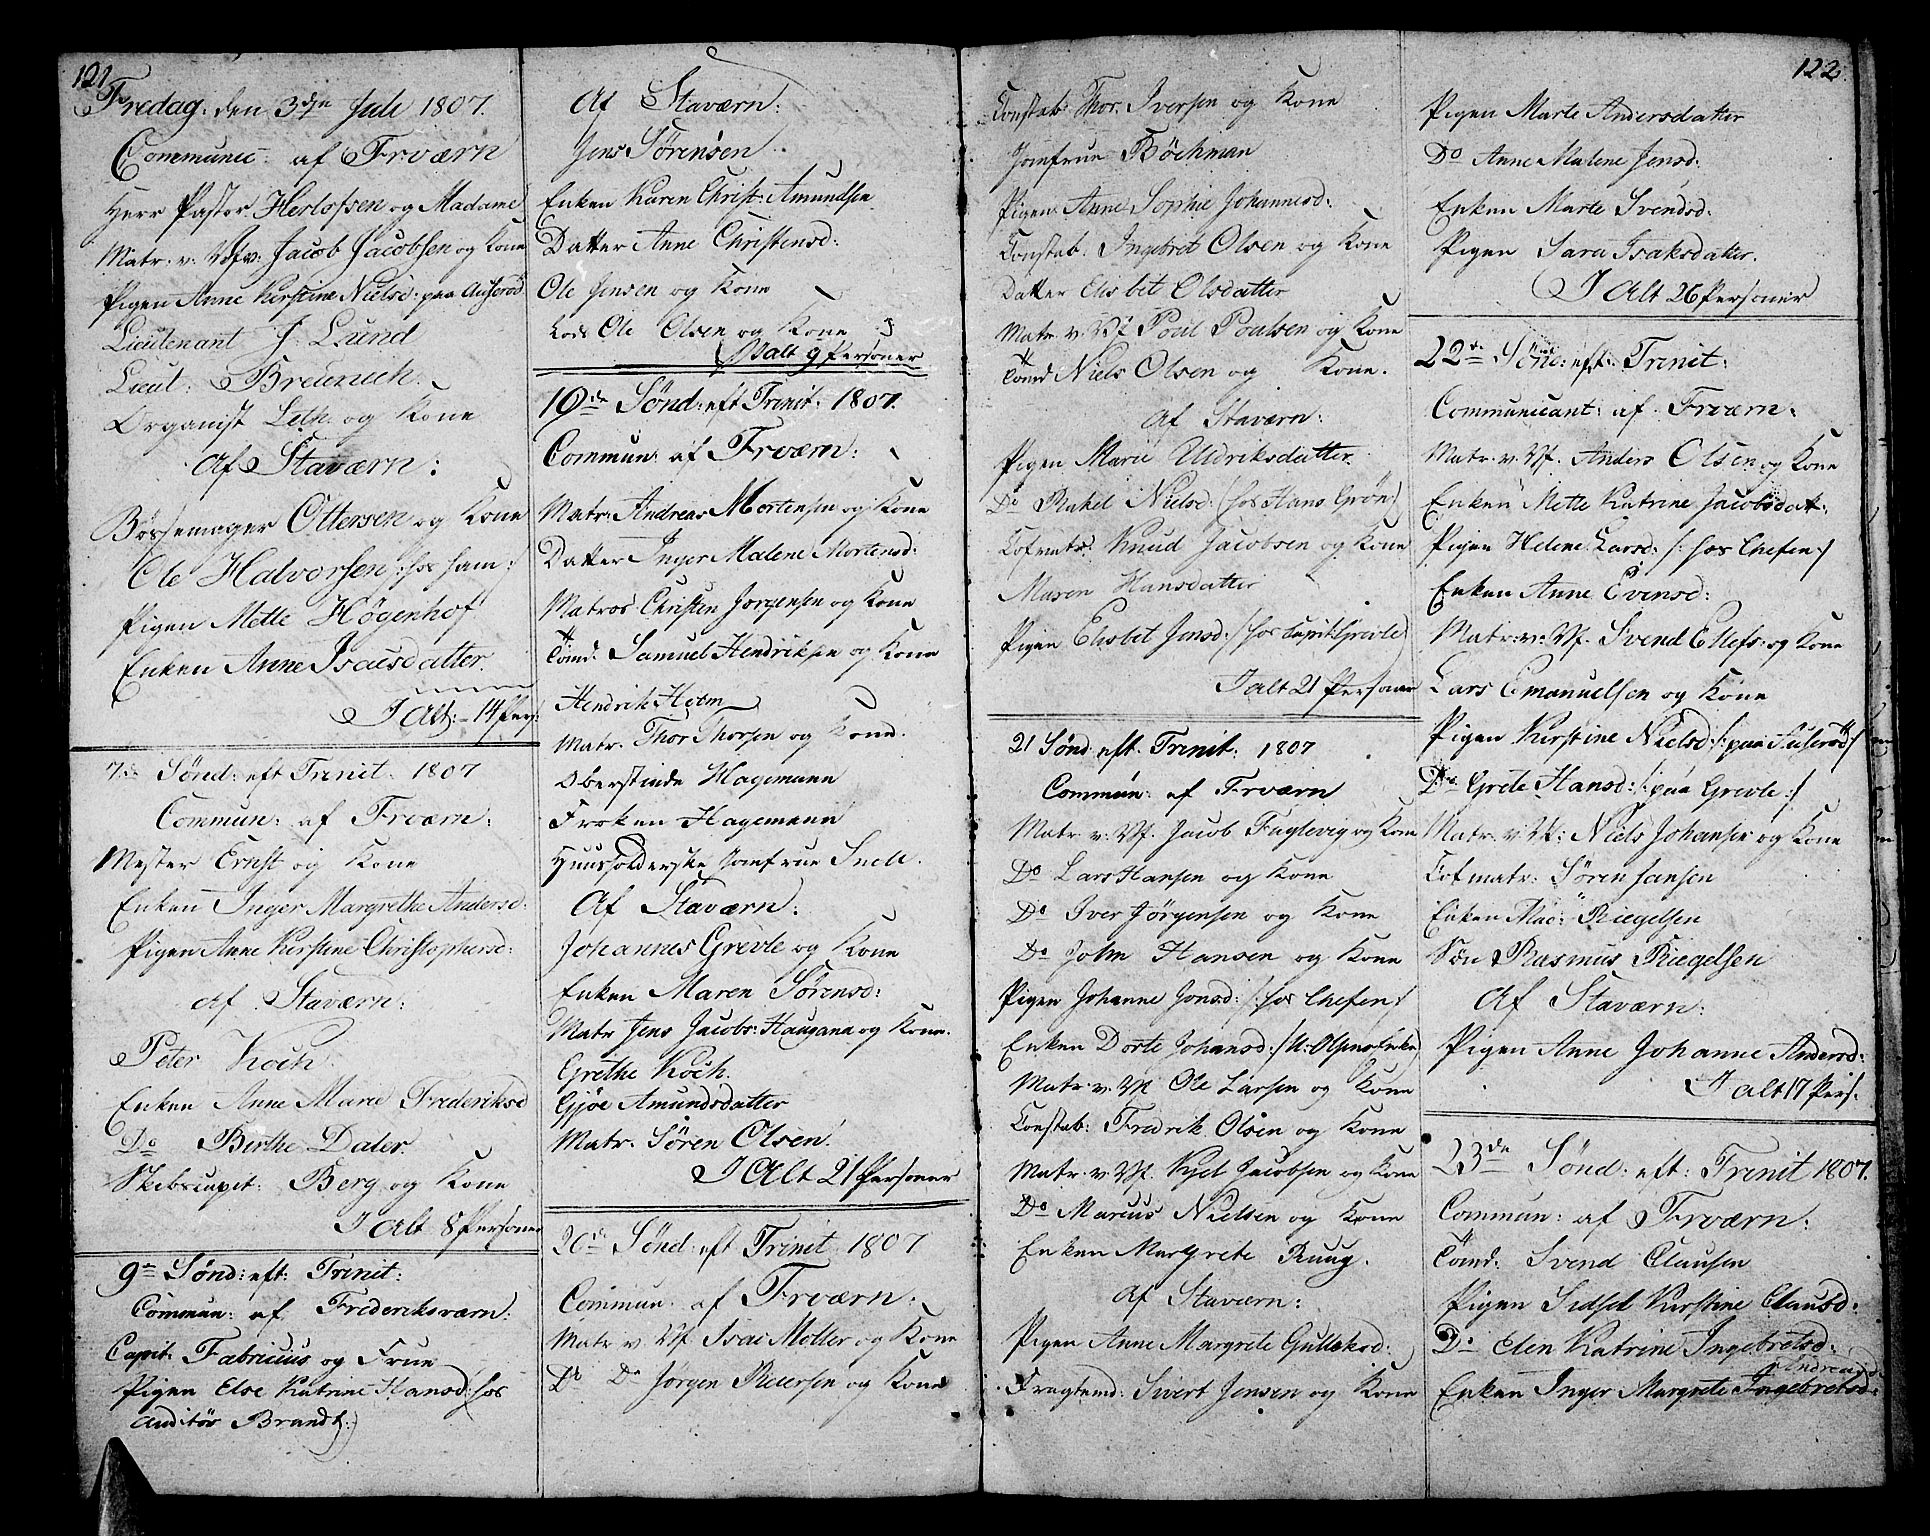 121
Fredag: den 3die Juli 1807.
Communic: af Frværn
Herr Pastor Herlofsen og Madame
Matr: v: Vfv: Jacob Jacobsen og Kone
Pigen Anne Kirstine Nielsd: paa Auserød
Lieutenant J. Lund
Lieut: Brederich
Organist Leth og Kone
Af Staværn:
Bøssemager Ottersen og Kone
Ole Halvorsen /: hos ham :/
Pigen Mette Høgenhof
Enken Anne Isacsdatter.
I Alt: 14 Pers:
7de Sønd: eft Trinit: 1807
Commun: af Frværn:
Mester Ernst og Kone
Enken Inger Margrethe Andersd:
Pigen Anne Kirstine Christophersd:
af Staværn:
Peter Koch
Enken Anne Marie Frederiksd
Do Birthe Daler
Skibscapit: Berg og Kone
I Alt 8 Personer
9de Sønd: eft: Trinit:
Commun: af Frederiksværn:
Capit: Fabricius og Frue
Pigen Else Katrine Hansd: (hos
Auditør Brandt:)
Af Staværn:
Jens Sørensen
Enken Karen Christ: Amundsen
Datter Anne Christensd:
Ole Jensen og Kone
Lods Ole Olsen og Kone
I alt 9 Personer
19de Sønd: eft Trinit: 1807.
Commun: af Frværn:
Matr: Andreas Mortensen og Kone
Datter Inger Malene Mortensd:
Matros Christen Jørgensen og Kone
Tømd: Samuel Hendriksen og Kone
Hendrik Holm
Matr. Thor Thorsen og Kone.
Oberstinde Hagemann
Frøken Hagemann
Huusholderske Jomfrue Snell.
Af Staværn:
Johannes Grevle og Kone
Enken Maren Sørensd:
Matr Jens Jacobs: Haugane og Kone.
Grethe Koch.
Gjøe Amundsdatter
Matr. Søren Olsen.
I Alt 21 Personer
20de Sønd: eft Trinit 1807
Commun: af Frværn:
Matr v: Vf Isac Møller og Kone
Do Do Jørgen Petersen og Kone
Constab: Thor. Iversen og Kone
Jomfrue Böchman
Pigen Anne Sophie Johannesd:
Constab. Ingebret Olsen og Kone
Datter Elisbet Olsdatter
Matr v. Vf Poul Poulsen og Kone
Tømd Niels Olsen og Kone.
af Staværn:
Pigen Marie Uldriksdatter
Do Rakel Nielsd: (hos Hans Grøn)
Cofmatr: Knud Jacobsen og Kone
Maren Hansdatter
Pigen Elisbet Jensd: /: hos Capit: Grevle)
I alt 21 Personer
21 Sønd: eft. Trinit. 1807
Commun: af Frværn
Matr v. Vf. Jacob Fuglevig og Kone
Do Lars Hansen og Kone
Do Iver Jørgensen og Kone
Do John Hansen og Kone
Pigen Johanne Jonsd: /: hos Chefen :/
Enken Dorte Johansd:
Matr. v. Vf. Ole Larsen og Kone
Constab: Fredrik Olsen og Kone
Matr. v. Vf. Kjel Jacobsen og Kone
Do Marcus Nielsen og Kone
Enken Margrete Ruug.
Af Staværn:
Pigen Anne Margrete Gulleksd:
Fragtemd: Sivert Jensen og Kone
122
Pigen Marte Andersdatter
Do Anne Malene Jensd:
Enken Marte Svendsd:
Pigen Sara Isaksdatter.
I Alt 26 Personer
22de Sønd: eft: Trinit:
Communicant: af Frværn:
Matr. v. Vf. Anders Olsen og Kone
Enken Mette Katrine Jacobsdat:
Pigen Helene Larsd: /: hos Chefen :/
Enken Anne Evensd:
Matr: v: Vf. Svend Ellefs: og Kone
Lars Emanuelsen og Kone
Pigen Kirstine Nielsd /: paa Auserød :/
Do Grete Hansd: /: paa Grevle :/
Matr: v. Vf: Niels Johansen og Kone
Cofmatr: Søren Hansen
Enken Mad: Riegelsen
Søn Rasmus Riegelsen
Af Staværn:
Pigen Anne Johanne Andersd:
I alt 17 Pers:
23de Sønd: eft: Trinit 1807.
Commun: af Frværn:
Tømd: Svend Clausen
Pigen Sidsel Kirstine Clausd:
Do Elen Katrine Ingebretsd:
Andreasd:
Enken Inger Margrete Ingebretsd: